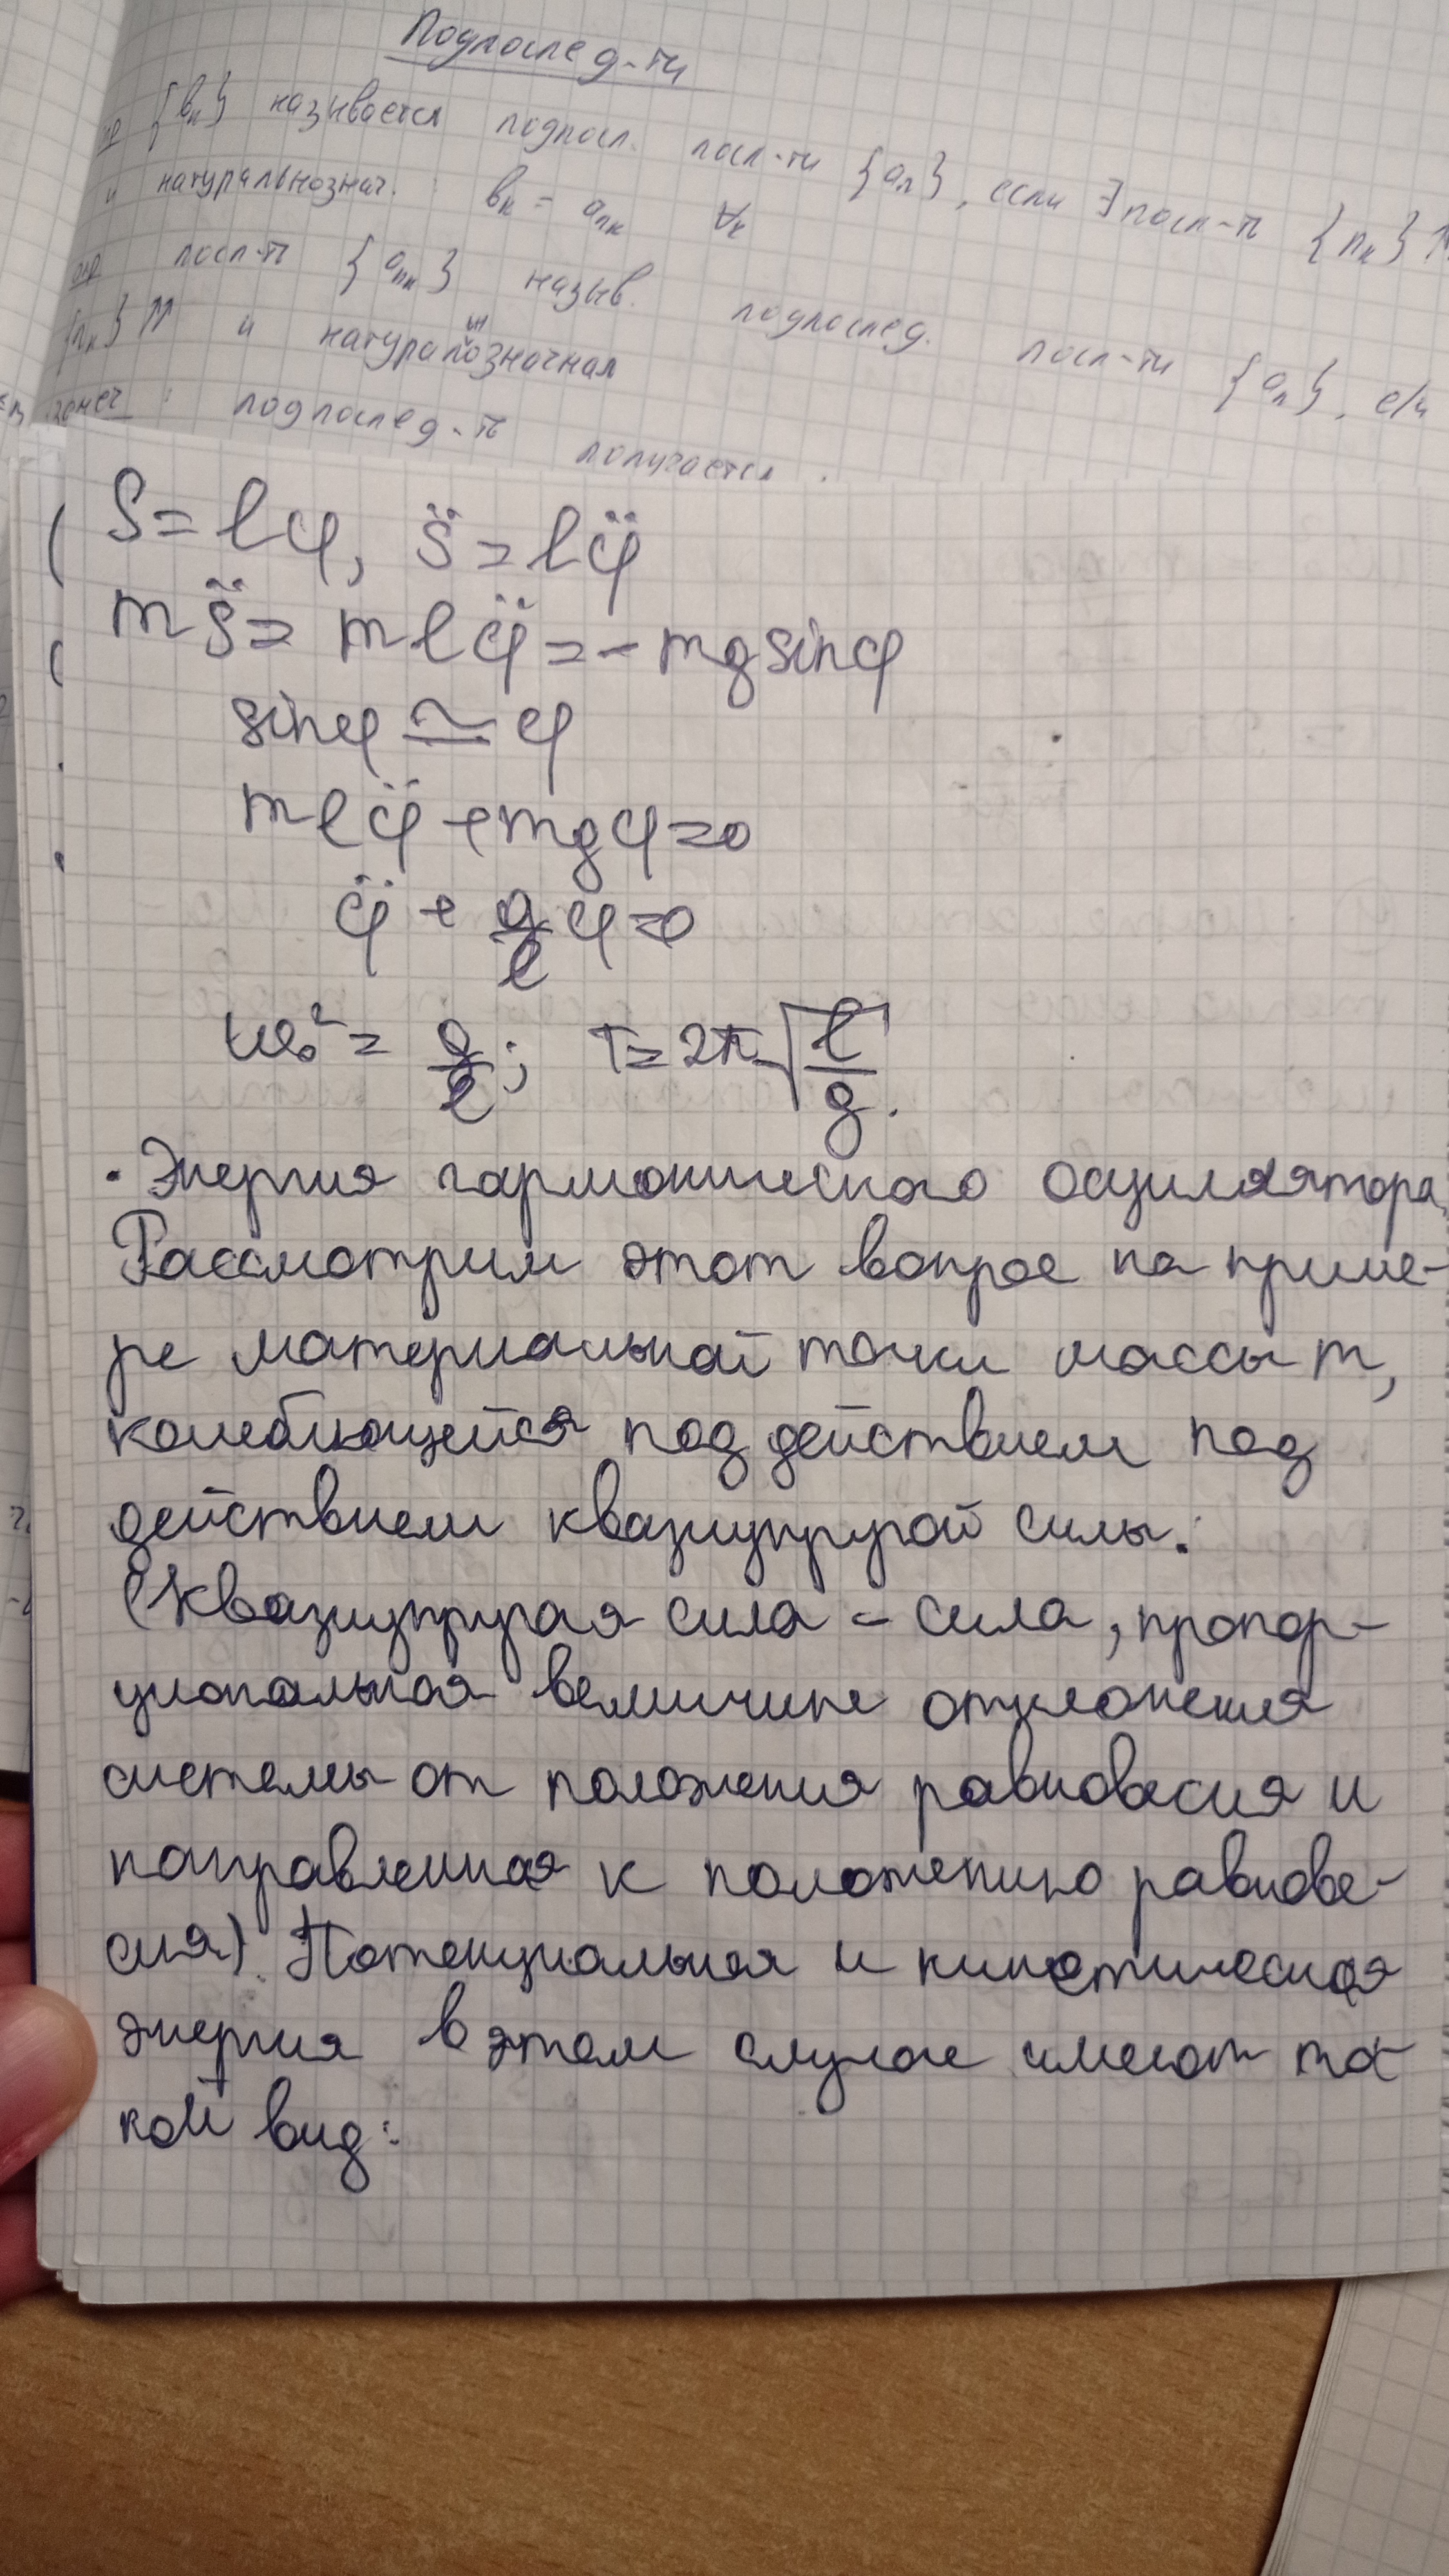 Подпослед-ти
опр {bₖ} называется подпосл. посл-ти {aₙ}, если ∃ посл-ть {nₖ}↑
и натуральнознач. : bₖ = aₙₖ ∀k
опр посл-ть {aₙₖ} назыв. подпослед. посл-ти {aₙ}, если
{nₖ}↑↑ и натуральнозначная
замеч : подпослед-ть получается
S = lφ, s̈ = lφ̈
ms̈ = mlφ̈ = - mg sinφ
sinφ ≅ φ
mlφ̈ + mgφ = 0
φ̈ + g/l φ = 0
ω₀² = g/l; T = 2π√(l/g).
· Энергия гармонического осциллятора.
Рассмотрим этот вопрос на приме-
ре материальной точки массы m,
колеблющейся под действием под
действием квазиупругой силы.
(Квазиупругая сила - сила, пропор-
циональная величине отклонения
системы от положения равновесия и
направленная к положению равнове-
сия). Потенциальная и кинетическая
энергия в этом случае имеют та-
кой вид: